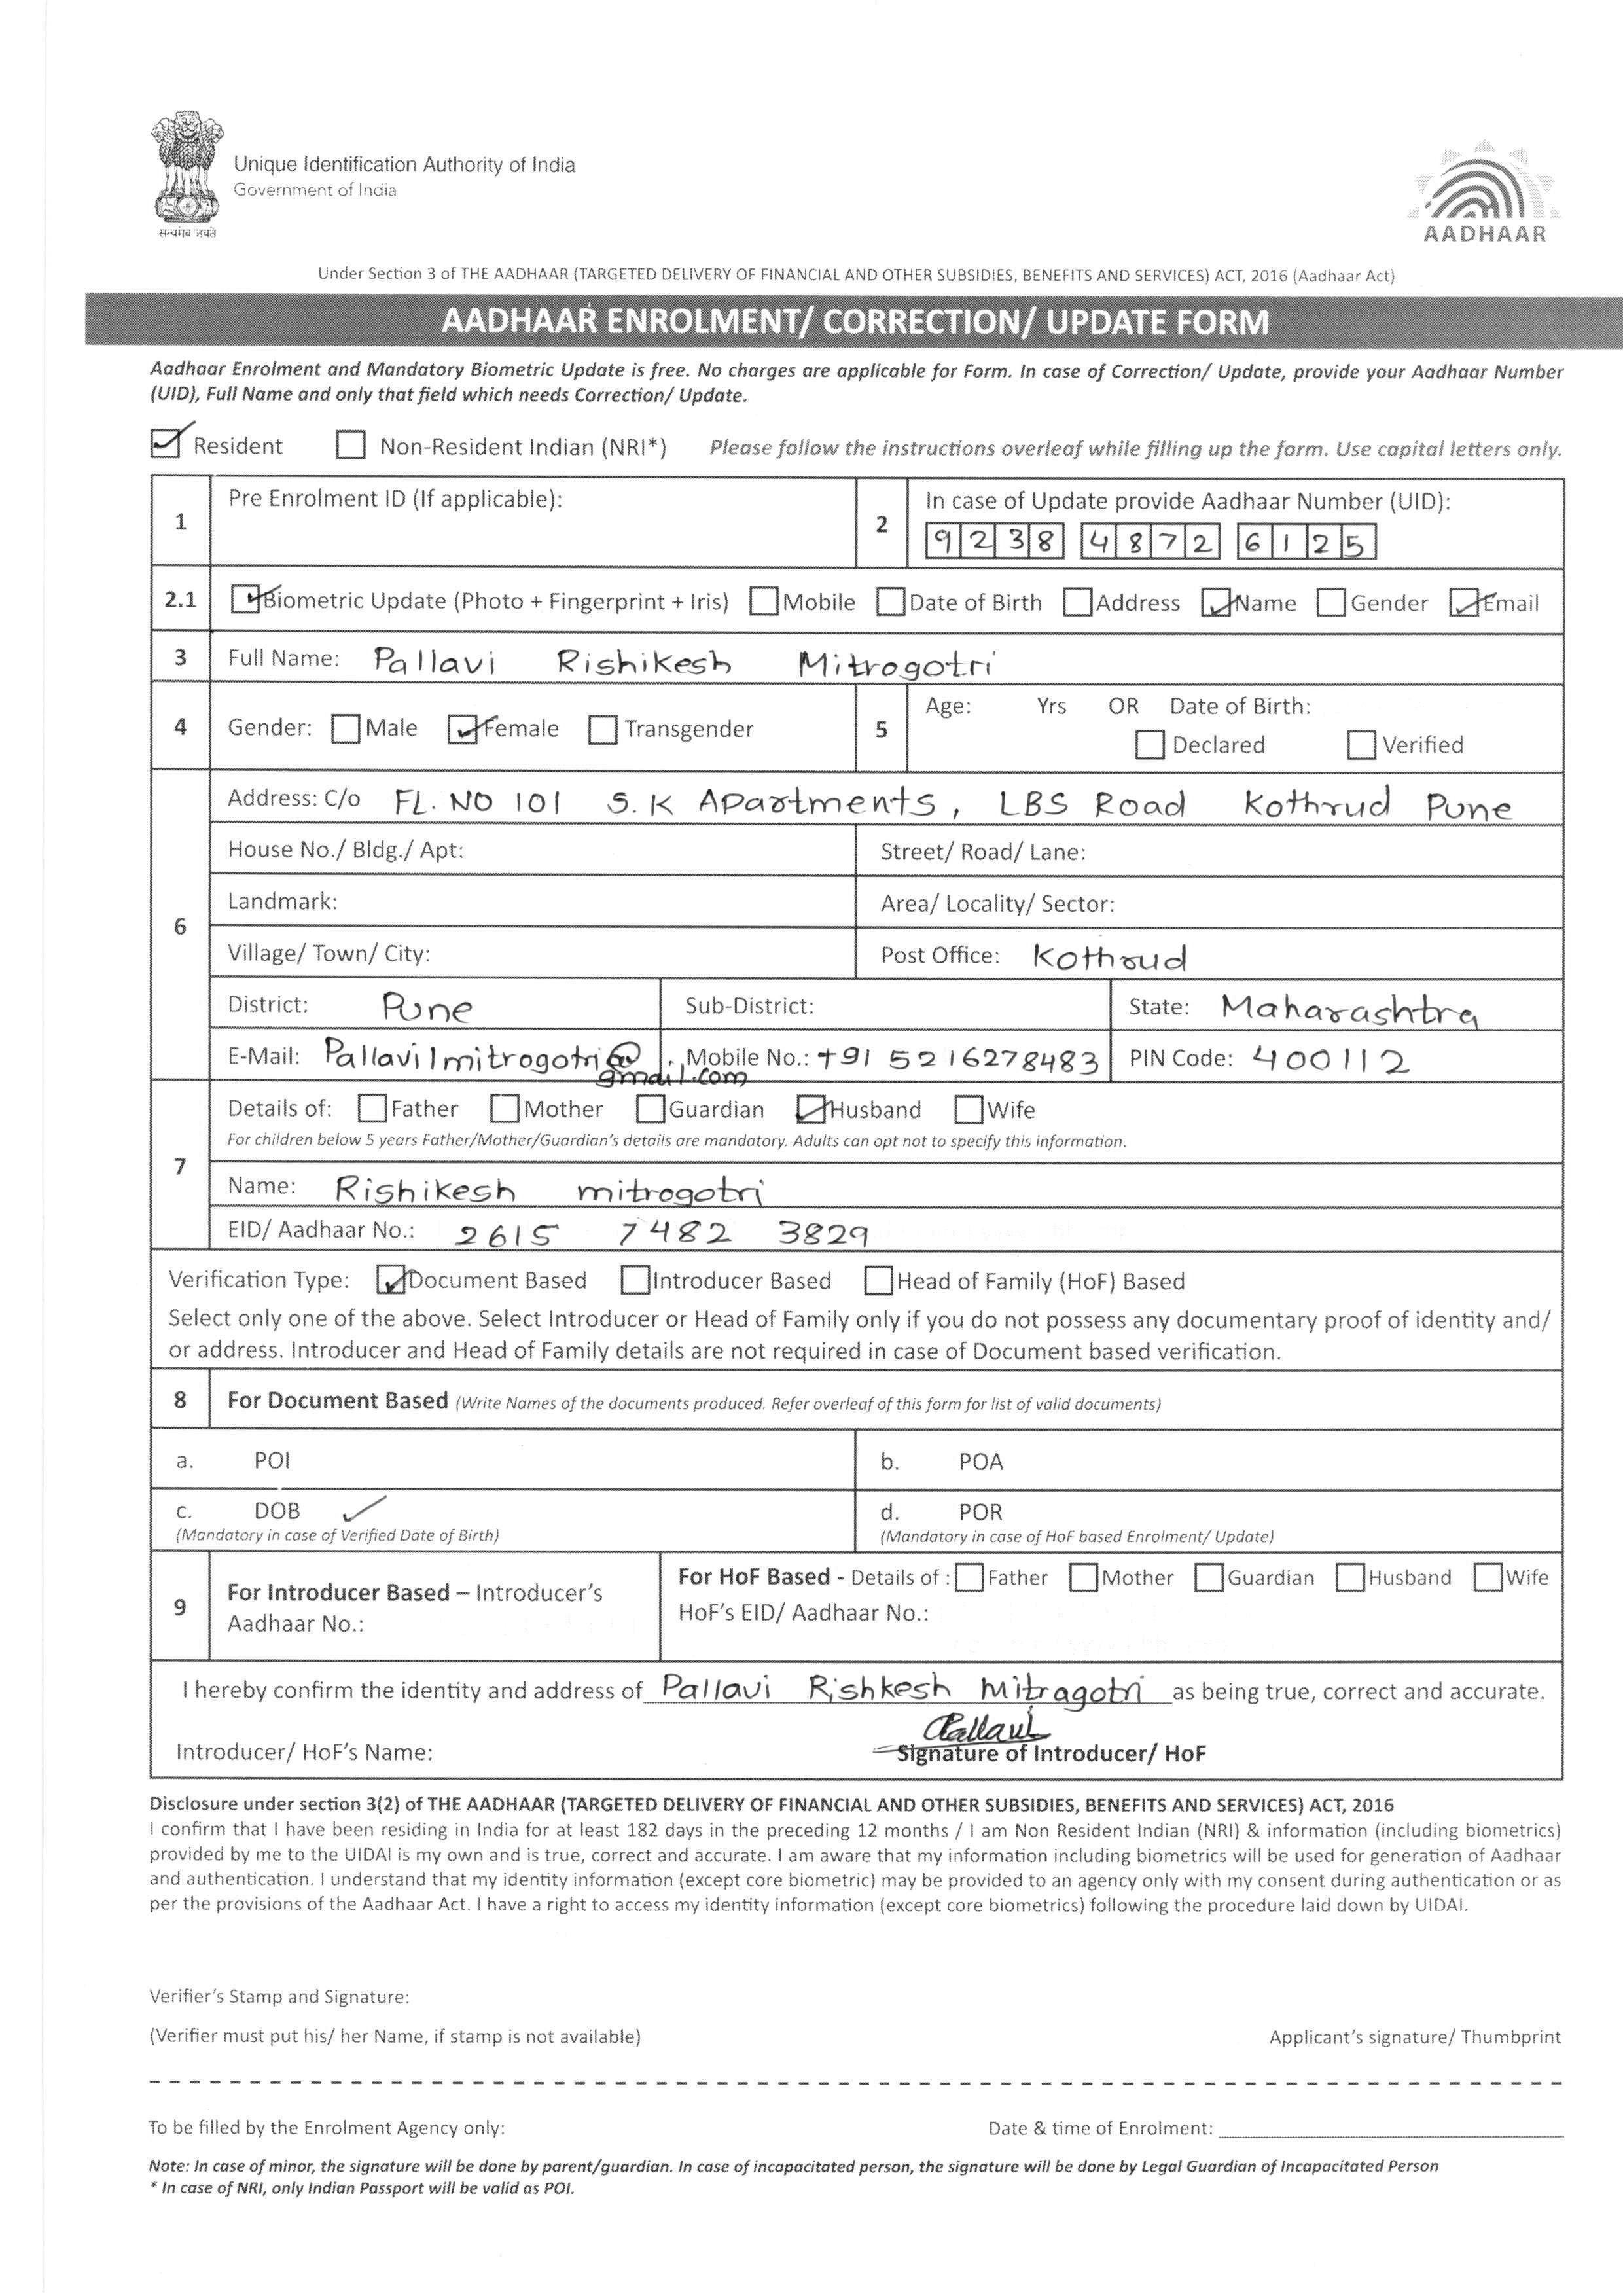 Unique Identification Authority of India
Government of India
सत्यमेव जयते
AADHAAR
Under Section 3 of THE AADHAAR (TARGETED DELIVERY OF FINANCIAL AND OTHER SUBSIDIES, BENEFITS AND SERVICES) ACT, 2016 (Aadhaar Act)
AADHAAR ENROLMENT/ CORRECTION/ UPDATE FORM
Aadhaar Enrolment and Mandatory Biometric Update is free. No charges are applicable for Form. In case of Correction/ Update, provide your Aadhaar Number
(UID), Full Name and only that field which needs Correction/ Update.
Resident Non-Resident Indian (NRI*) Please follow the instructions overleaf while filling up the form. Use capital letters only.
1 Pre Enrolment ID (If applicable): 2 In case of Update provide Aadhaar Number (UID):
9238 4872 6125
2.1 Biometric Update (Photo + Fingerprint + Iris) Mobile Date of Birth Address Name Gender Email
3 Full Name: Pallavi Rishikesh Mitrogotri
4 Gender: Male Female Transgender 5 Age: Yrs OR Date of Birth:
Declared Verified
6 Address: C/o FL. NO 101 S. K Apartments, LBS Road Kothrud Pune
House No./ Bldg./ Apt: Street/ Road/ Lane:
Landmark: Area/ Locality/ Sector:
Village/ Town/ City: Post Office: Kothrud
District: Pune Sub-District: State: Maharashtra
E-Mail: Pallavi1mitrogotri@ Mobile No.: +91 5216278483 PIN Code: 400112
gmail.com
7 Details of: Father Mother Guardian Husband Wife
For children below 5 years Father/Mother/Guardian's details are mandatory. Adults can opt not to specify this information.
Name: Rishikesh mitrogotri
EID/ Aadhaar No.: 2615 7482 3829
Verification Type: Document Based Introducer Based Head of Family (HoF) Based
Select only one of the above. Select Introducer or Head of Family only if you do not possess any documentary proof of identity and/
or address. Introducer and Head of Family details are not required in case of Document based verification.
8 For Document Based (Write Names of the documents produced. Refer overleaf of this form for list of valid documents)
a. POI b. POA
c. DOB ✓ d. POR
(Mandatory in case of Verified Date of Birth) (Mandatory in case of HoF based Enrolment/ Update)
9 For Introducer Based – Introducer's For HoF Based - Details of : Father Mother Guardian Husband Wife
Aadhaar No.: HoF's EID/ Aadhaar No.:
I hereby confirm the identity and address of Pallavi Rishkesh Mitragotri as being true, correct and accurate.
Pallavi
Introducer/ HoF's Name: Signature of Introducer/ HoF
Disclosure under section 3(2) of THE AADHAAR (TARGETED DELIVERY OF FINANCIAL AND OTHER SUBSIDIES, BENEFITS AND SERVICES) ACT, 2016
I confirm that I have been residing in India for at least 182 days in the preceding 12 months / I am Non Resident Indian (NRI) & information (including biometrics)
provided by me to the UIDAI is my own and is true, correct and accurate. I am aware that my information including biometrics will be used for generation of Aadhaar
and authentication. I understand that my identity information (except core biometric) may be provided to an agency only with my consent during authentication or as
per the provisions of the Aadhaar Act. I have a right to access my identity information (except core biometrics) following the procedure laid down by UIDAI.
Verifier's Stamp and Signature:
(Verifier must put his/ her Name, if stamp is not available) Applicant's signature/ Thumbprint
To be filled by the Enrolment Agency only: Date & time of Enrolment:
Note: In case of minor, the signature will be done by parent/guardian. In case of incapacitated person, the signature will be done by Legal Guardian of Incapacitated Person
* In case of NRI, only Indian Passport will be valid as POI.